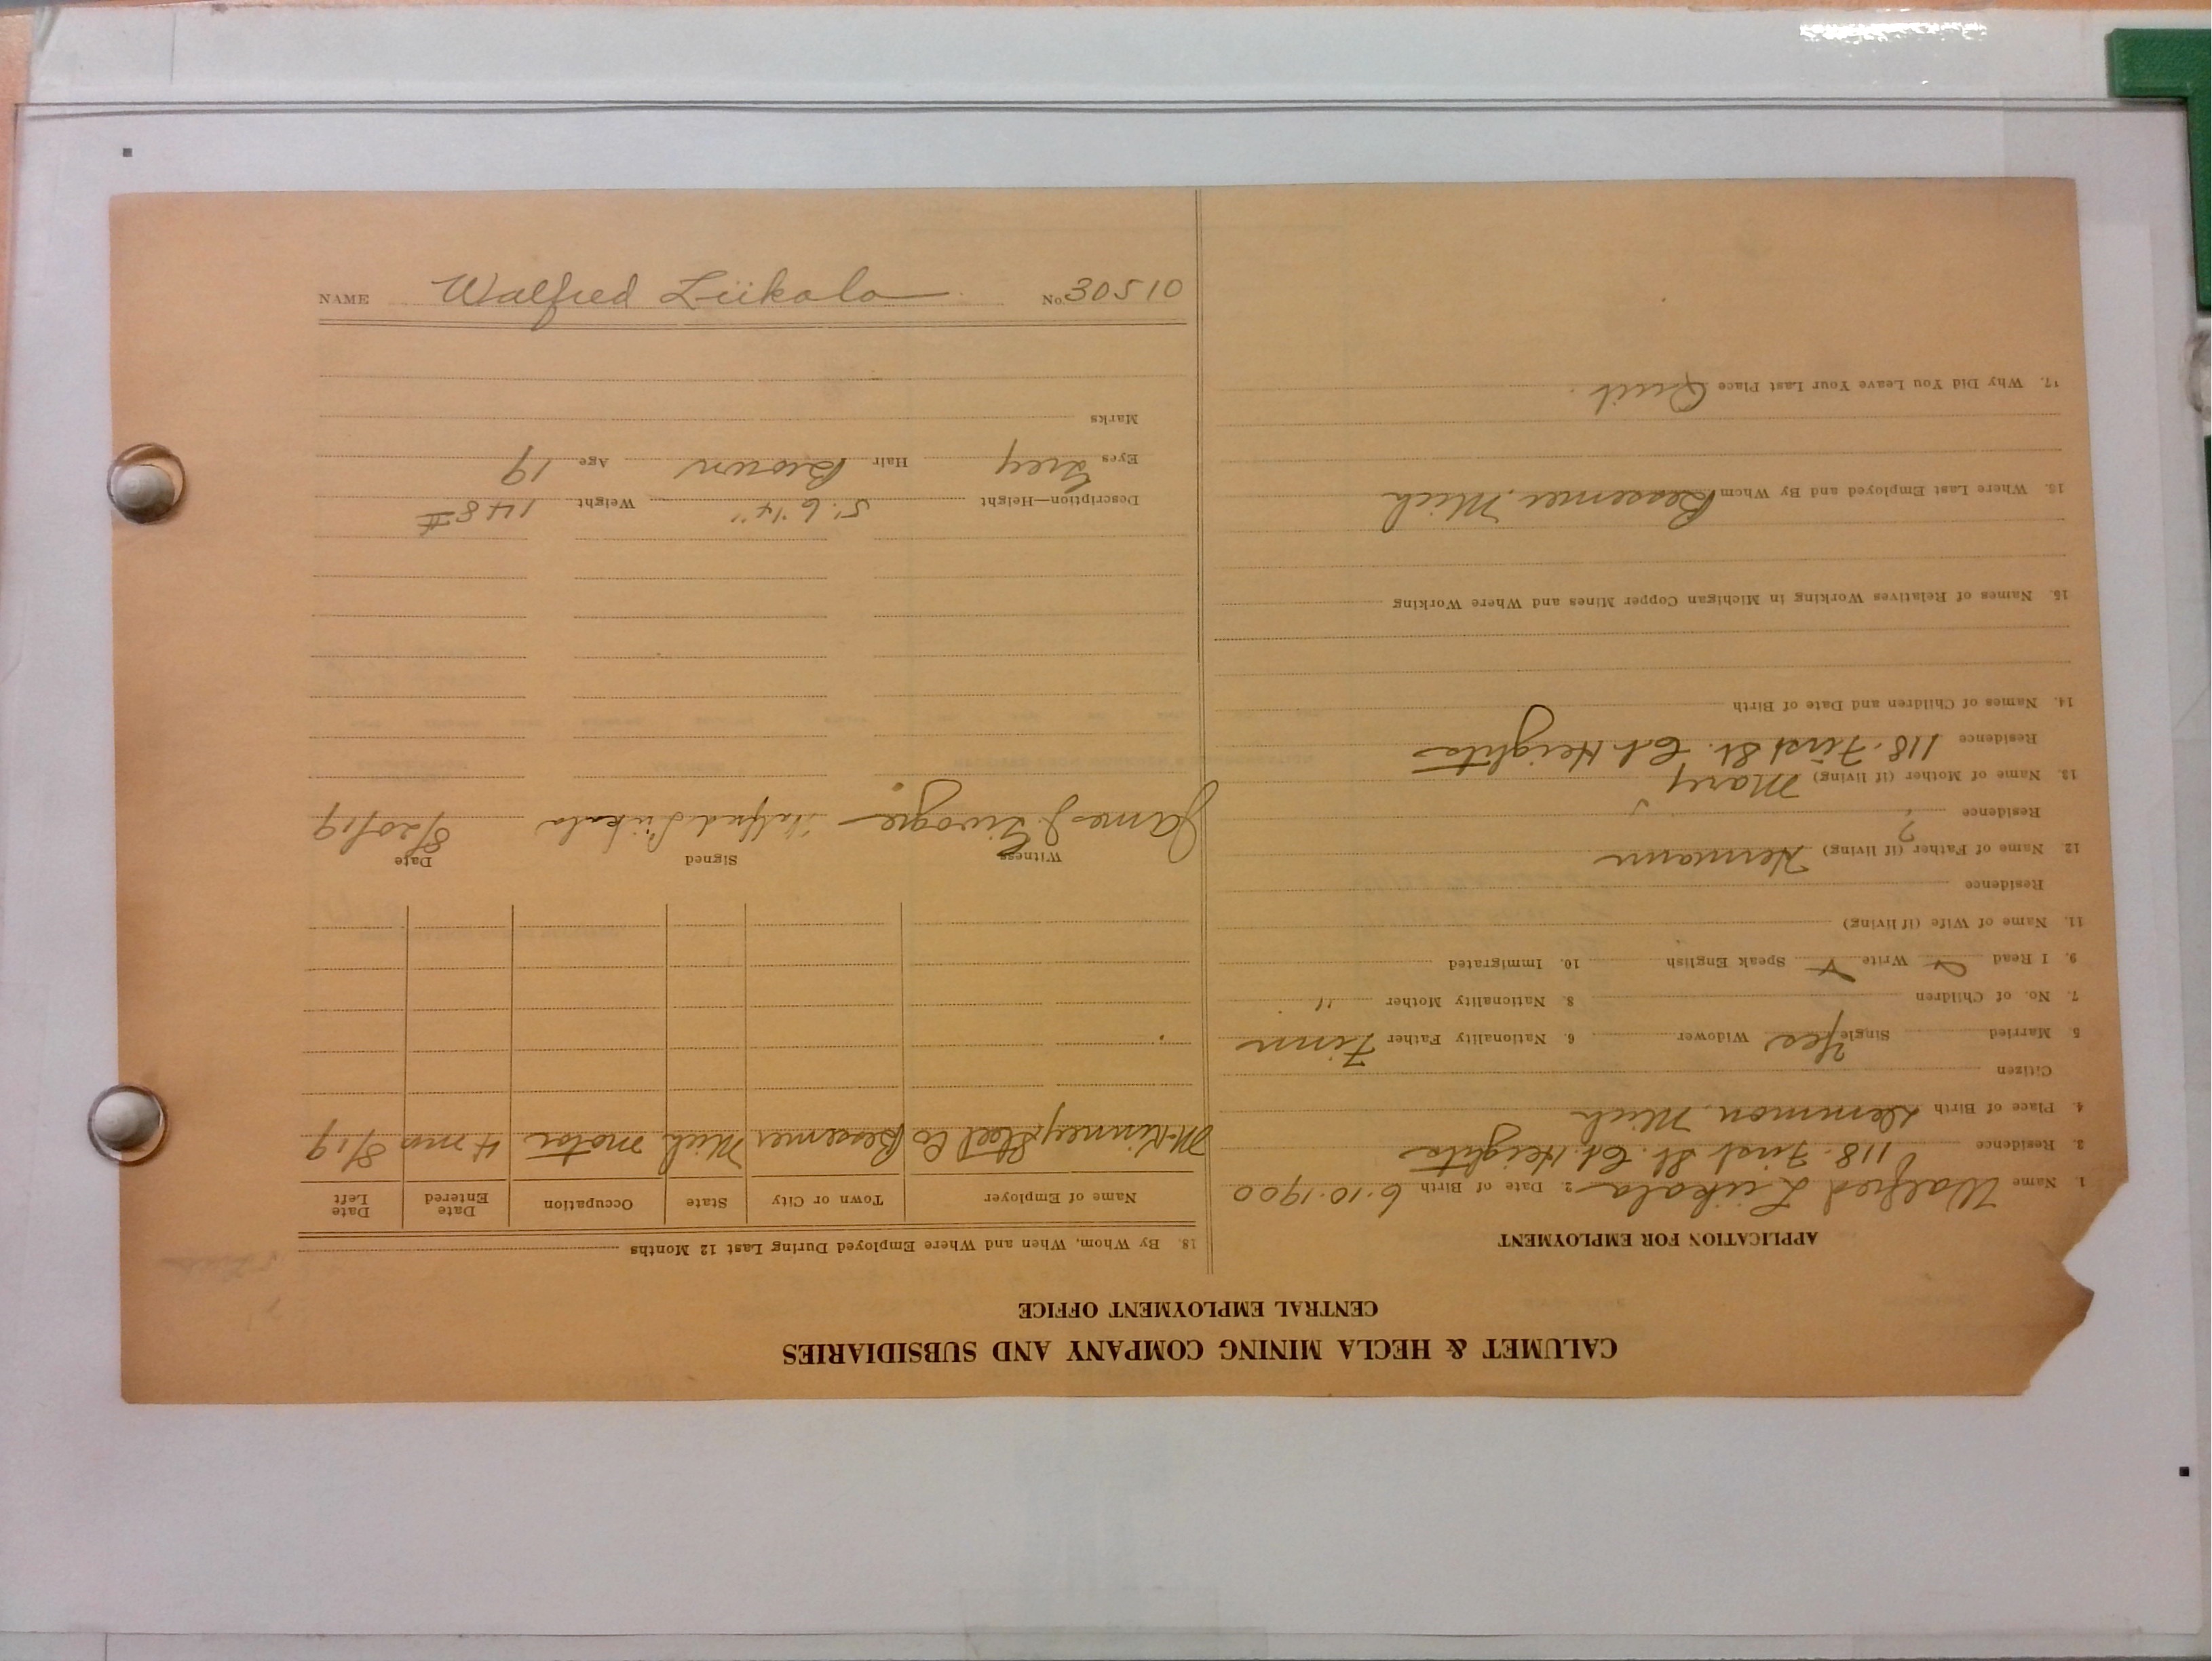 CALUMET & HECLA MINING COMPANY AND SUBSIDIARIES
CENTRAL EMPLOYMENT OFFICE
APPLICATION FOR EMPLOYMENT
1. Name Walfred Liikala 2. Date of Birth 6.10.1900
3. Residence 118. First St. Cal. Heights
4. Place of Birth Mich
Citizen
5. Married Single Yes Widower 6. Nationality Father Finn
7. No. of Children 8. Nationality Mother "
9. I Read Write Speak English 10. Immigrated
11. Name of Wife (if living)
Residence
12. Name of Father (if living) Hermann
Residence ?
13. Name of Mother (if living) Mary
Residence 118. First St. Cal. Heights
14. Names of Children and Date of Birth
15. Names of Relatives Working in Michigan Copper Mines and Where Working
16. Where Last Employed and By Whom Bessemer, Mich
17. Why Did You Leave Your Last Place Quit.
18. By Whom, When and Where Employed During Last 12 Months
Name of Employer Town or City State Occupation Date Entered Date Left
McKinney Steel Co Bessemer Mich motor 4 mo 8/19
Witness Signed Date
James J. Walfred Liikala 8/20/19
Description—Height 5' 6 1/4" Weight 148 #
Eyes Grey Hair Brown Age 19
Marks
NAME Walfred Liikala No. 30510